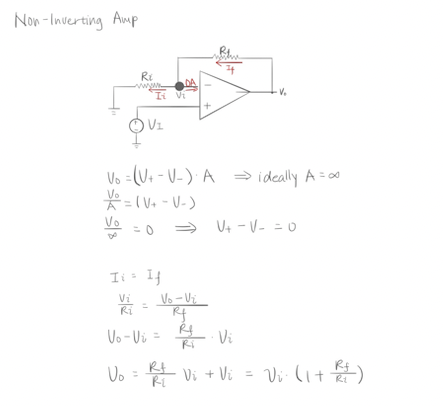 Non-Inverting Amp
Rf
If
Ri
0A
Ii
Vi
−
+
Vo
VI
Vo = (V+ − V−) · A ⇒ ideally A = ∞
Vo/A = (V+ − V−)
Vo/∞ = 0 ⇒ V+ − V− = 0
Ii = If
Vi/Ri = Vo−Vi/Rf
Vo−Vi = Rf/Ri · Vi
Vo = Rf/Ri Vi + Vi = Vi · (1 + Rf/Ri)